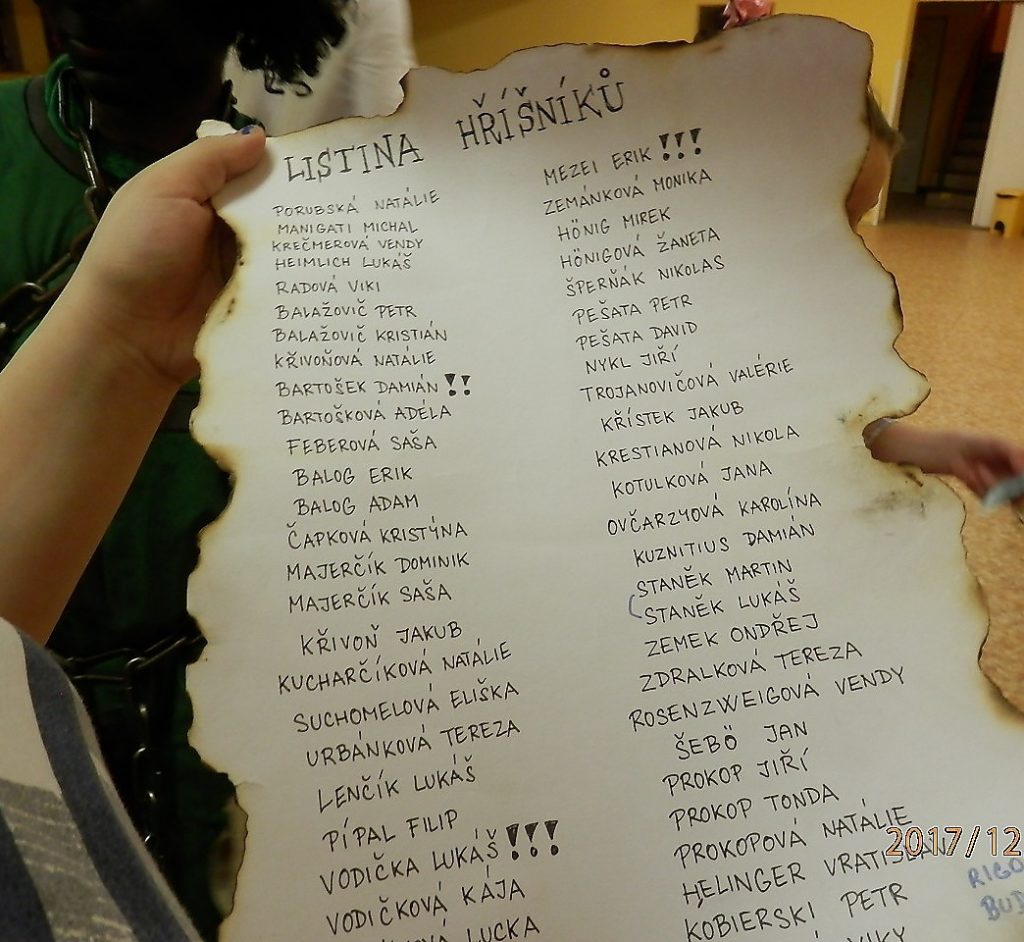 LISTINA HŘÍŠNÍKŮ
PORUBSKÁ NATÁLIE
MANIGATI MICHAL
KREČMEROVÁ VENDY
HEIMLICH LUKÁŠ
RADOVÁ VIKI
BALAŽOVIČ PETR
BALAŽOVIČ KRISTIÁN
KŘIVOŇOVÁ NATÁLIE
BARTOŠEK DAMIÁN!!
BARTOŠKOVÁ ADÉLA
FEBEROVÁ SAŠA
BALOG ERIK
BALOG ADAM
ČAPKOVÁ KRISTÝNA
MAJERČÍK DOMINIK
MAJERČÍK SAŠA
KŘIVOŇ JAKUB
KUCHARČÍKOVÁ NATÁLIE
SUCHOMELOVÁ ELIŠKA
URBÁNKOVÁ TEREZA
LENČÍK LUKÁŠ
PÍPAL FILIP
VODIČKA LUKÁŠ!!!
VODIČKOVÁ KÁJA
LUCKA
MEZEI ERIK!!!
ZEMÁNKOVÁ MONIKA
HÖNIG MIREK
HÖNIGOVÁ ŽANETA
ŠPERŇÁK NIKOLAS
PEŠATA PETR
PEŠATA DAVID
NYKL JIŘÍ
TROJANOVIČOVÁ VALÉRIE
KŘÍSTEK JAKUB
KRESTIANOVÁ NIKOLA
KOTULKOVÁ JANA
OVČARZYOVÁ KAROLÍNA
KUZNITIUS DAMIÁN
STANĚK MARTIN
STANĚK LUKÁŠ
ZEMEK ONDŘEJ
ZDRALKOVÁ TEREZA
ROSENZWEIGOVÁ VENDY
ŠEBÖ JAN
PROKOP JIŘÍ
PROKOP TONDA
PROKOPOVÁ NATÁLIE
HELINGER VRATISLAV
KOBIERSKI PETR
VIKY
2017/12
RIGO
BUD